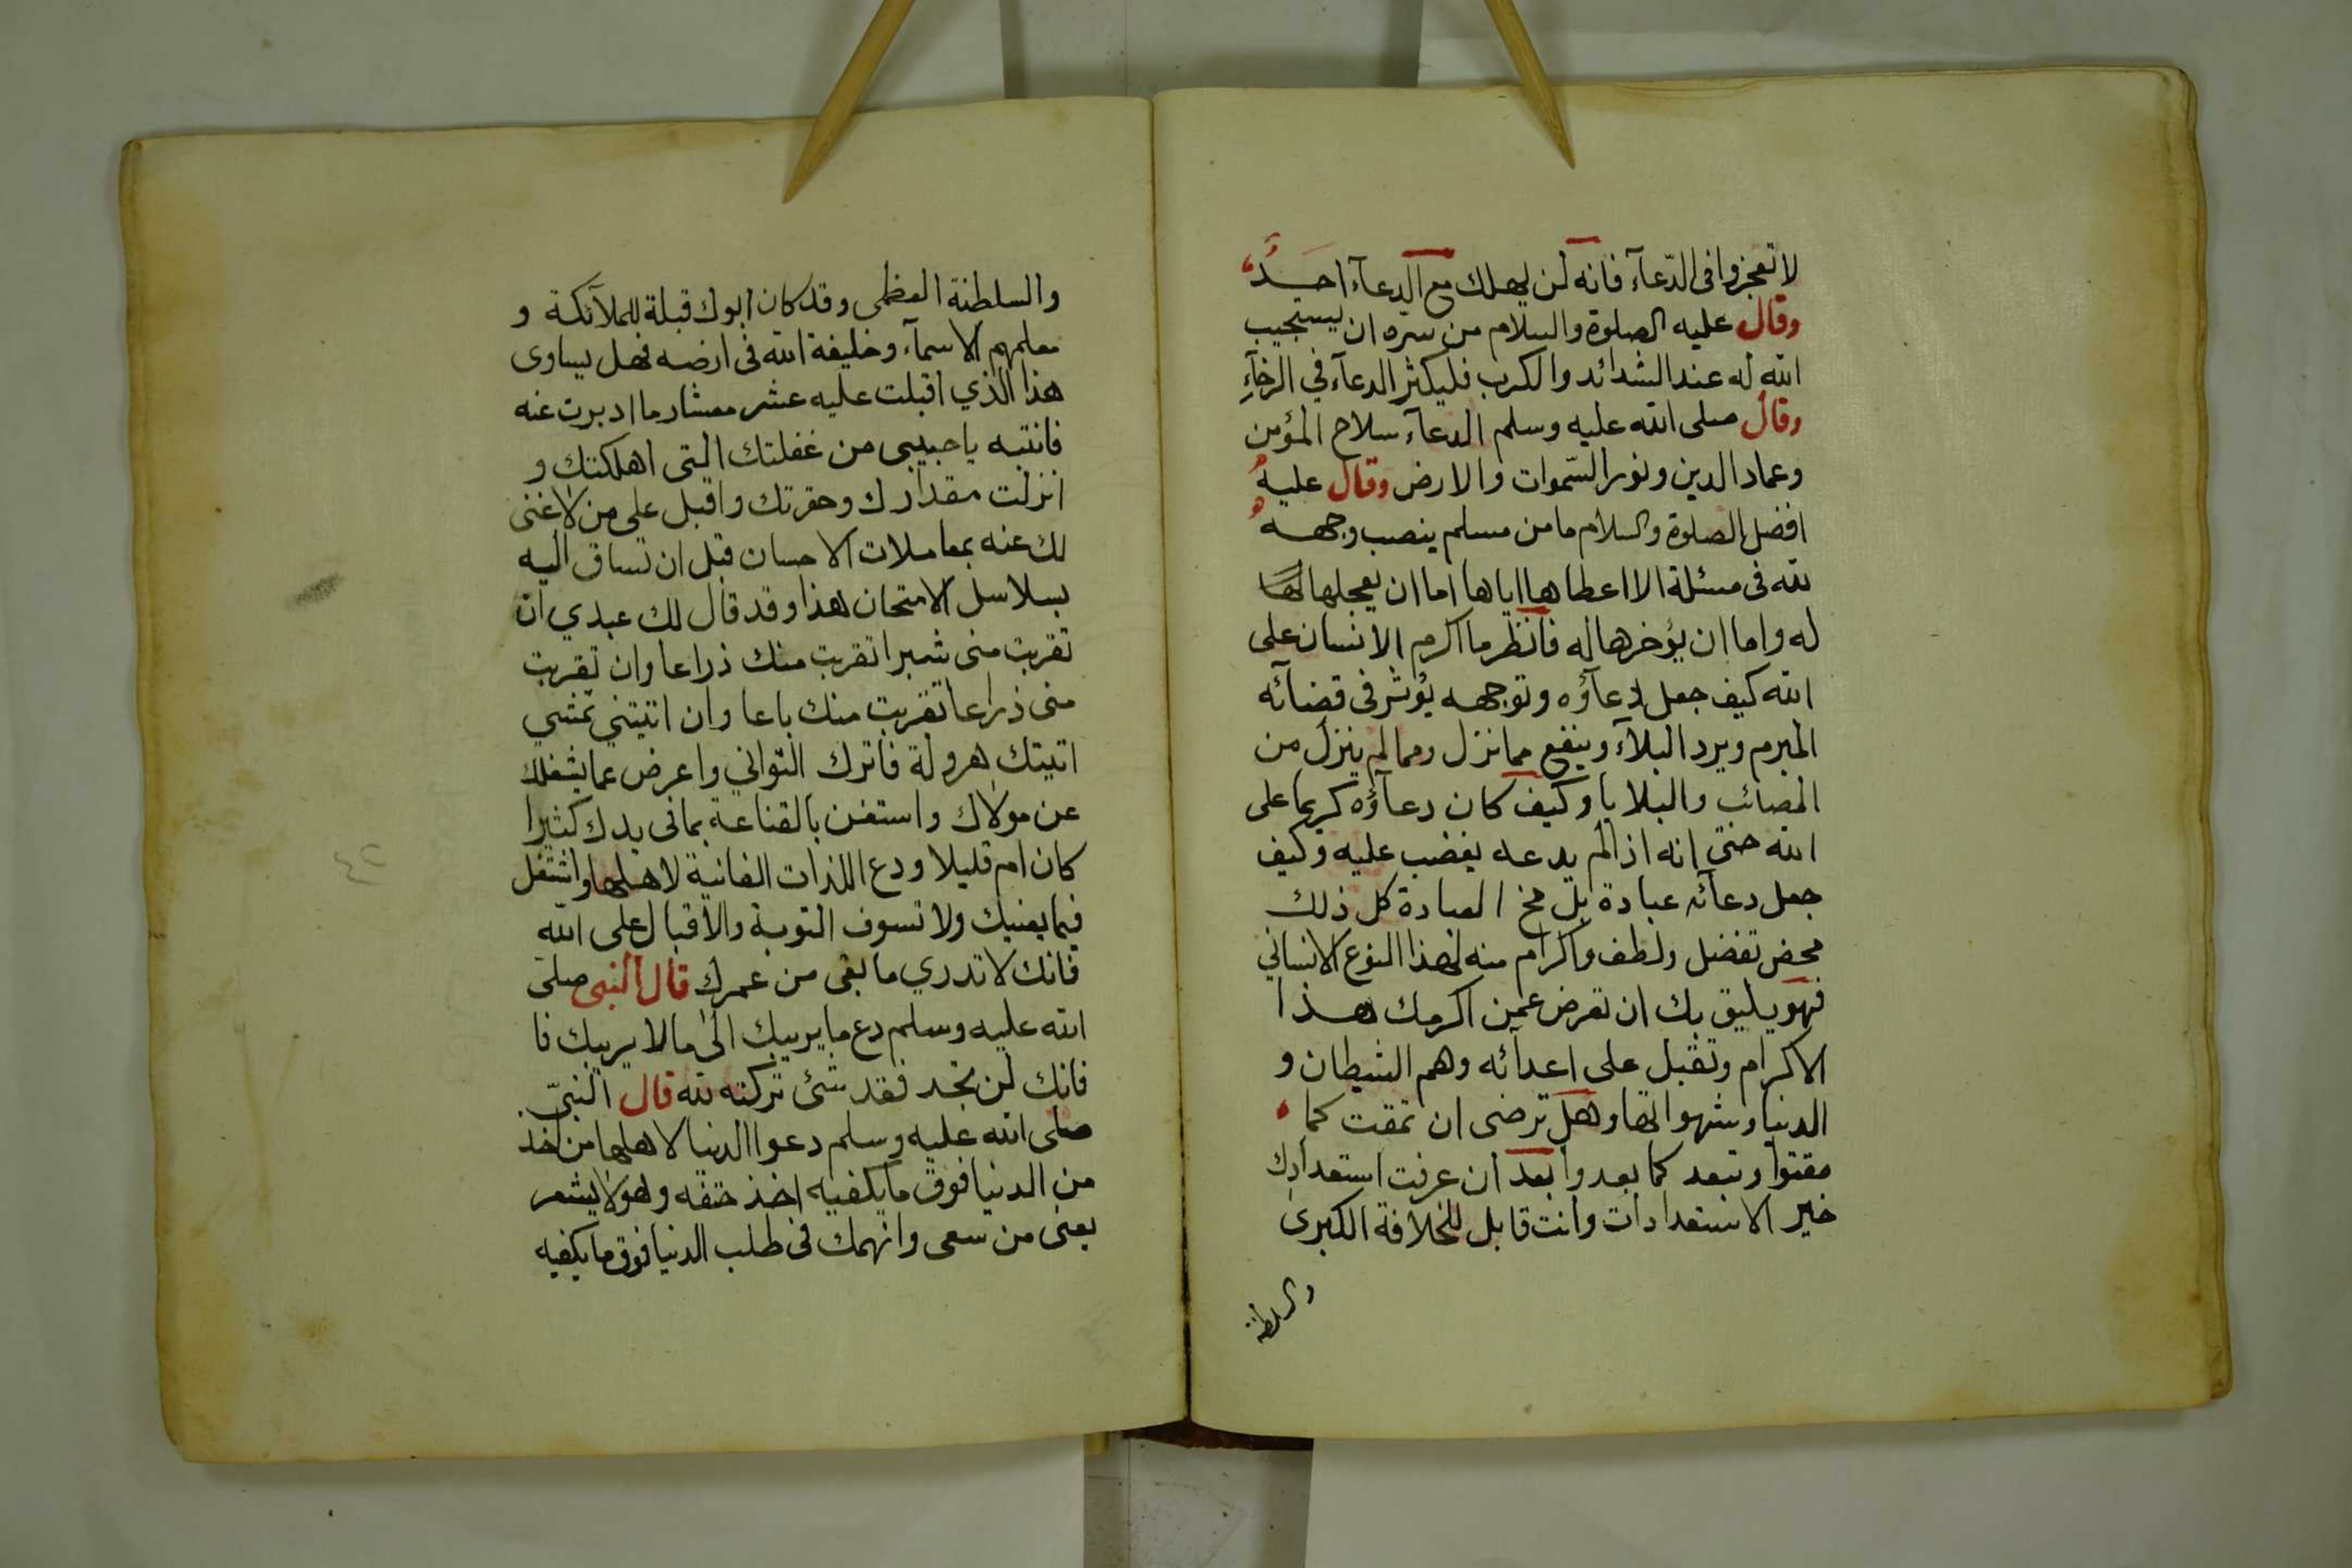 لا تعجزوا فى الدّعآء فانه لن يهلك مع الدعآء احد
وقال عليه الصلوة والسلام من سره ان يستجيب
الله له عند الشدائد والكرب فليكثر الدعآء في الرخآءِ
وقال صلى الله عليه وسلم الدعآء سلاح المؤمن
وعماد الدين ونور السّموات والارض وقال عليه
افضل الصلوة والسلام ما من مسلم ينصب وجهه
لله فى مسئلة الا اعطاها اياها اما ان يعجلها لها
له واما ان يؤخرها له فانظر ما اكرم الانسان على
الله كيف جعل دعآؤه وتوجهه يؤثر فى قضآئه
المبرم ويرد البلآء وينفع مما نزل ومما لم ينزل من
المصائب والبلايا وكيف كان دعآؤه كريما على
الله حتى انه اذا لم يدعه يغضب عليه وكيف
جعل دعآئه عبادة بل مخ العبادة كل ذلك
محض تفضل ولطف واكرام منه لهذا النوع الانساني
فهو يليق بك ان تعرض عمن اكرمك هذا
الاكرام وتقبل على اعدآئه وهم الشيطان و
الدنيا وشهواتها وهل ترضى ان تمقت كما
مقتوا وتبعد كما بعدوا بعد ان عرفت استعدادك
خير الاستعدادات وانت قابل للخلافة الكبرى
والسلطنة
والسلطنة العظمى وقد كان ابوك قبلة للملآئكة و
معلمهم الاسمآء وخليفة الله فى ارضه فهل يساوى
هذا الذي اقبلت عليه عشر معشار ما ادبرت عنه
فانتبه يا حبيبى من غفلتك التى اهلكتك و
انزلت مقدارك وحقرتك واقبل على من لا غنى
لك عنه بمعاملات الاحسان قبل ان تساق اليه
بسلاسل الامتحان هذا وقد قال لك عبدي ان
تقربت منى شبرا تقربت منك ذراعا وان تقربت
منى ذراعا تقربت منك باعا وان اتيتني تمشي
اتيتك هرولة فاترك التواني واعرض عما يشغلك
عن مولاك واستغن بالقناعة بما فى يدك كثيرا
كان ام قليلا ودع اللذات الفانية لاهلها واشتغل
فيما يعنيك ولا تسوف التوبة والاقبال على الله
فانك لا تدري ما بقى من عمرك قال النبى صلى
الله عليه وسلم دع ما يريبك الى ما لا يريبك فا
فانك لن تجد فقد شئ تركته لله قال النبىّ
صلى الله عليه وسلم دعوا الدنيا لاهلها من اخذ
من الدنيا فوق ما يكفيه اخذ حتفه وهو لا يشعر
يعنى من سعى وانهمك فى طلب الدنيا فوق ما يكفيه
٤٢